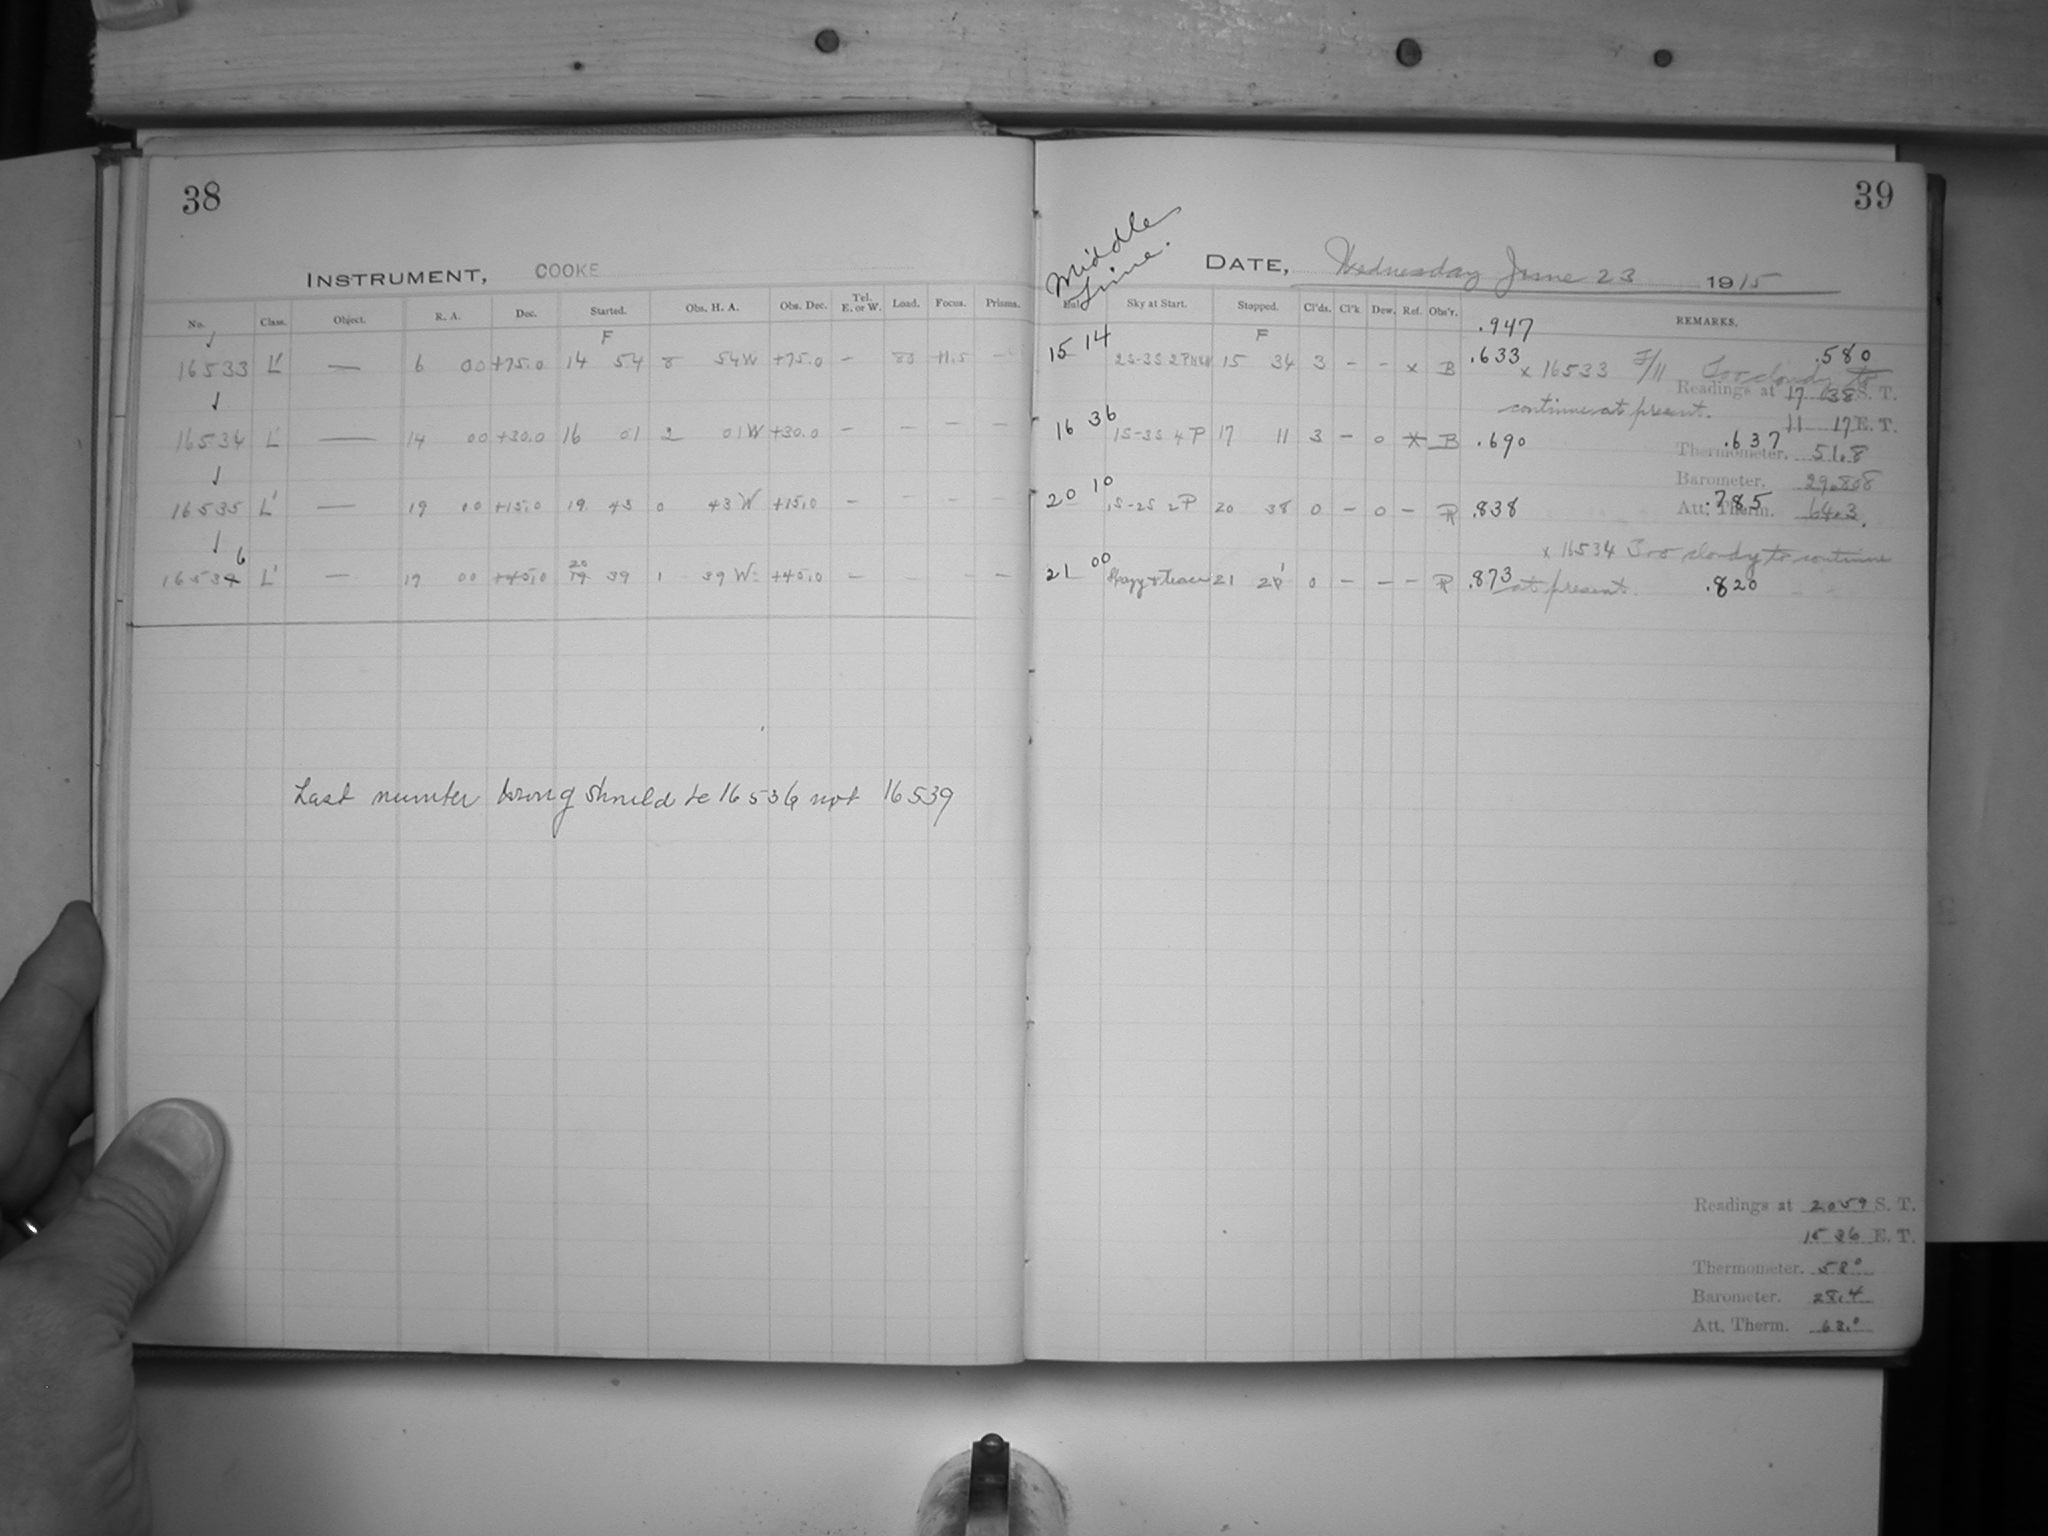 38
INSTRUMENT, COOKE
No. Class. Object. R. A. Dec. Started. Obs. H. A. Obs. Dec. Tel. E. or W. Load. Focus. Prisms.
F
16533 L' — 6 00 +75.0 14 54 8 54 W +75.0 — 83 +11.5 —
16534 L' — 14 00 +30.0 16 01 2 01 W +30.0 — — — —
16535 L' — 19 00 +15.0 19 43 0 43 W +15.0 — — — —
6
20
1653 L' — 19 00 +45.0 19 39 1 39 W +45.0 — — — —
Last number wrong should be 16536 not 16539
39
Middle Time.
DATE, Wednesday June 23 1915
Sky at Start. Stopped. Cl'ds. Cl'k Dew. Ref. Obs'r. REMARKS.
F .947
15 14 2S-3S 15 34 3 — — x B .633 x 16533 F/11 Too cloudy to .580
Readings at 17 38 S. T.
continue at present.
11 17 E. T.
16 36 1S-3S 4 P 17 11 3 — 0 x B .690 .637
Thermometer. 51.8
Barometer. 29.808
20 10 1S-2S 2P 20 38 0 — 0 — R .838 .785
Att. Therm. 64.3
x 16534 Too cloudy to continue
21 00 21 21 0 — — — R .873 at present. .820
Readings at 20 59 S. T.
15 36 E. T.
Thermometer. 58°
Barometer. 28.4
Att. Therm. 63.0